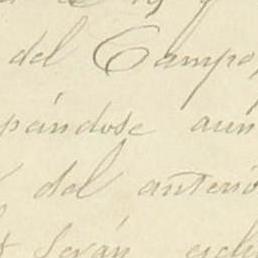 del Campo,
pándose aun
del anterio
Serán